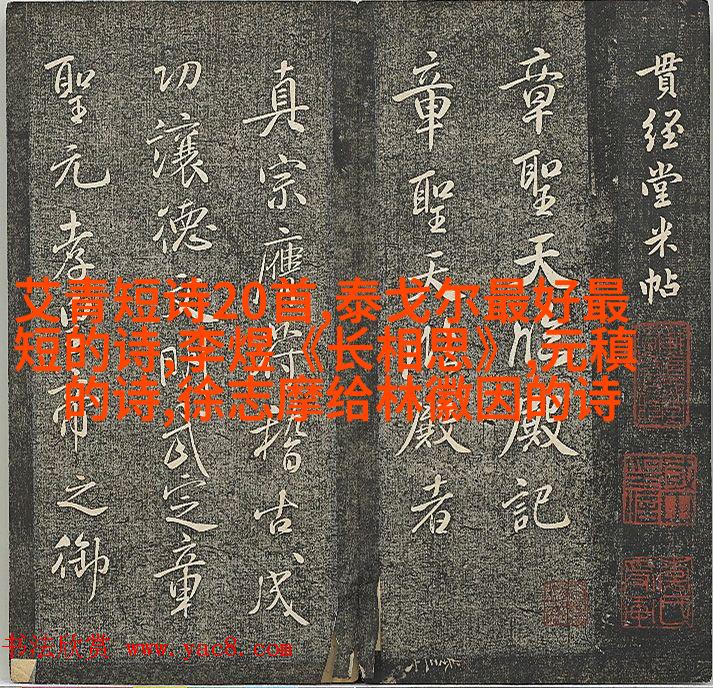 貫經堂米帖
章聖天臨殿記
章聖天臨殿者
真宗應符稽古成
功讓德明武定章
聖元孝帝之御
艾青短诗20首,泰戈尔最好最
短的诗,李煜《长相思》,元稹
的诗,徐志摩给林徽因的诗
书法欣赏 www.yac8.com